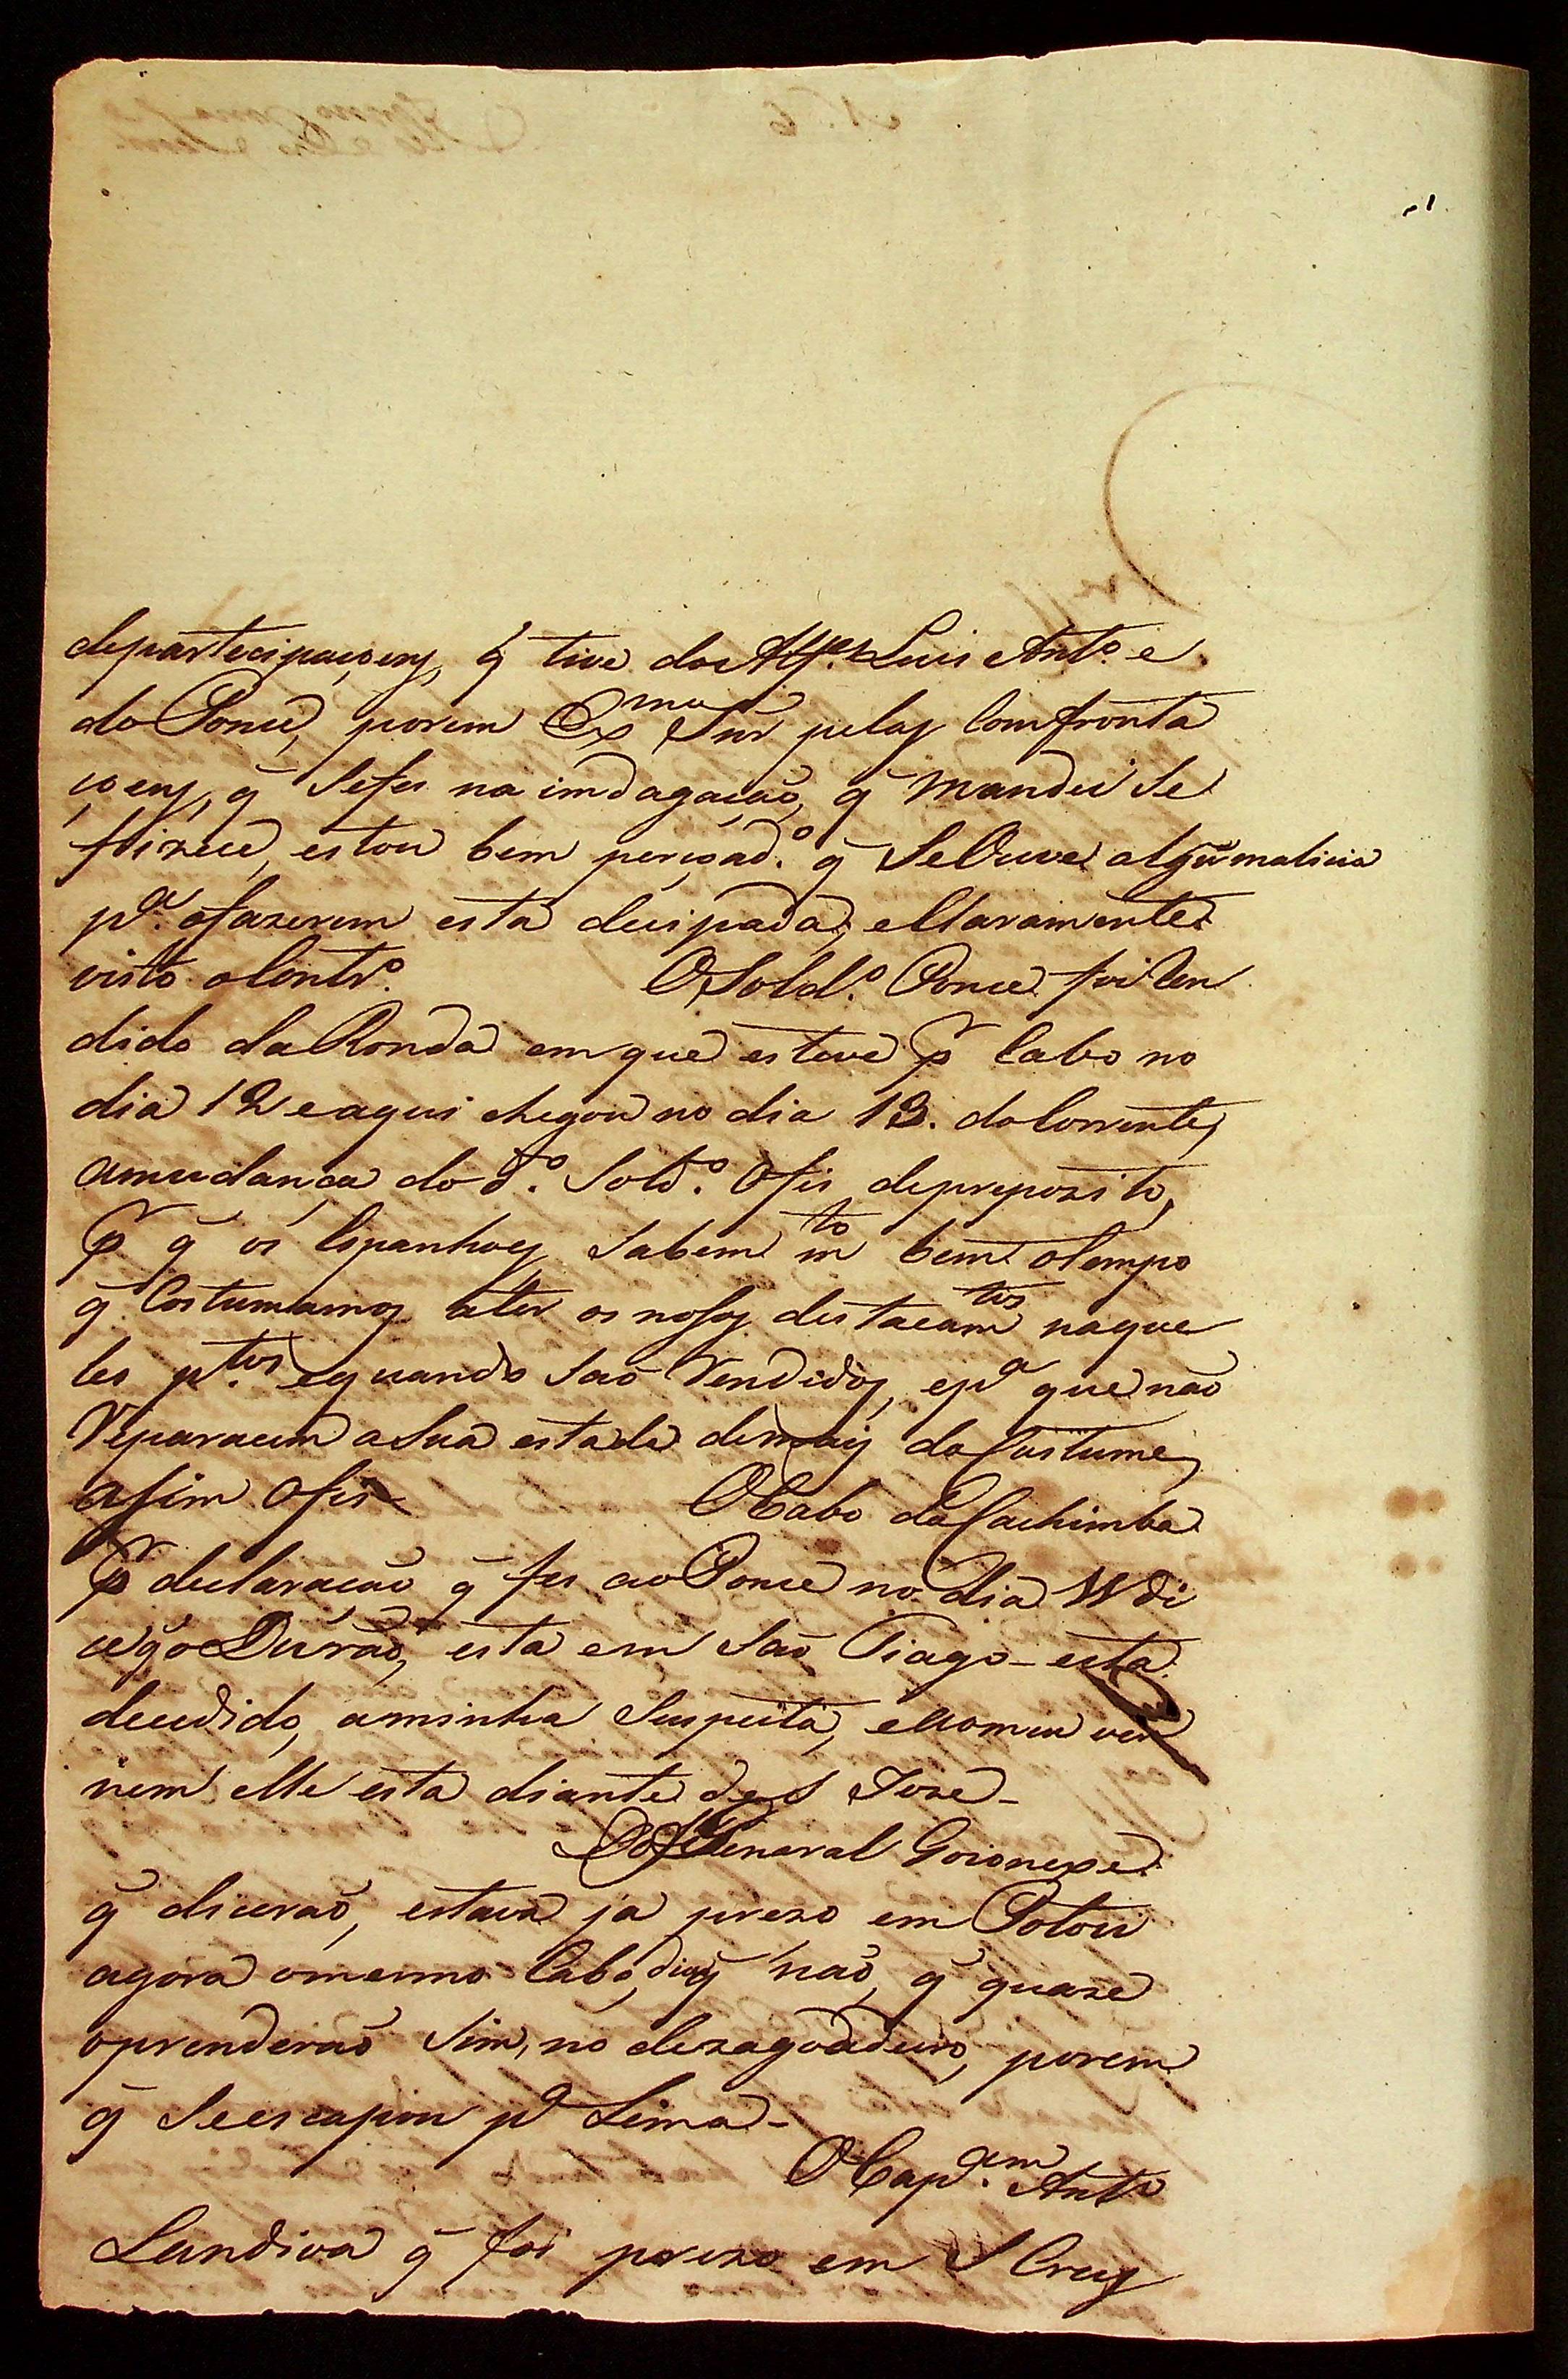 departecipaçoens, q̃ tive do Alfes. Luis Anto. e
do Ponce, porem Exmo Snr pelas Comfronta
çoens, q̃ Sefes na imdagação, q̃ mandei Se
fizece, estou bem perçoado. q̃ SeOuve algũa malicia
pa. ofazerem está decipada, eClaramente
visto oContro. OSoldo. Ponce foi Ren
dido da Ronda em que esteve pr Cabo no
dia 12 eaqui chegou no dia 13. do Corrente,
amudança do do. Soldo. Ofis deprepozito,
pr q̃ os Espanhoes Sabem mto bem otempo
q̃ Costumamos ater os nossos destacamtos naque
les ptos. equando São Rendidos, epa que não
Reparacem aSua estada demais do Custume,
assim Ofis OCabo da Cachimba
pr declaração q̃ fes ao Ponce no dia 11 di
ce q̃ o Durão, está em São Tiago - está
decedido, aminha Suspeita,
nem elle está diante de S Joze -
OGeneral Goionexe
q̃ dicerão, estava já prezo em Potoci
agora omesmo Cabo, dis q̃ não, q̃ quaze
oprenderão Sim, no dezagoadeiro, porem
q̃ Seescapou pa Lima -
OCapam. Anto
Landivá q̃ foi prezo em S Crus